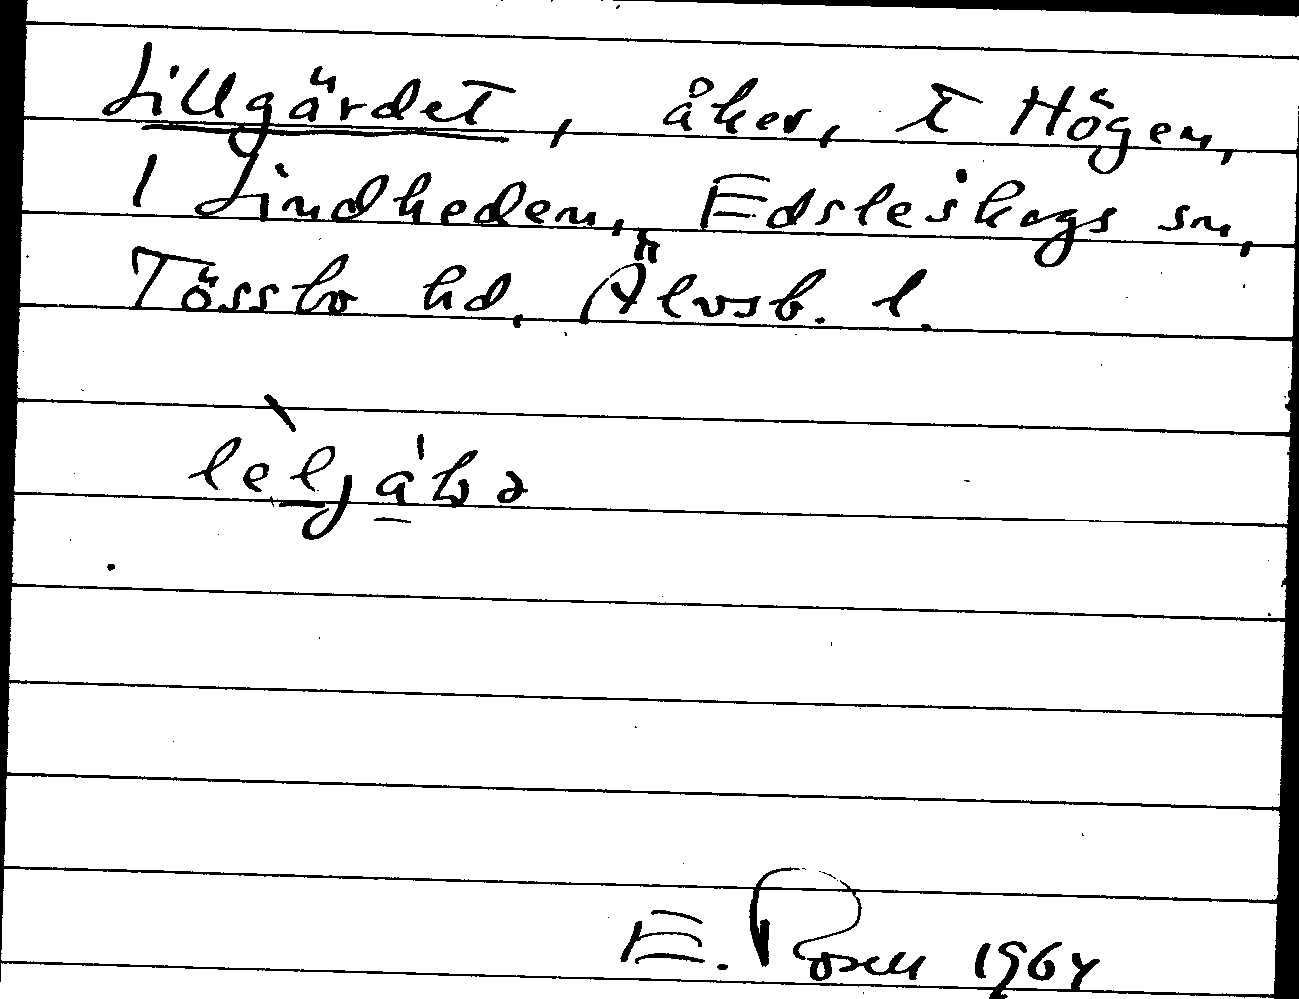 Lillgärdet, åker, t Högen,
1 Lindheden, Edsleskogs sn,
Tössbo hd, Älvsb. l.
E. Rosell 1964